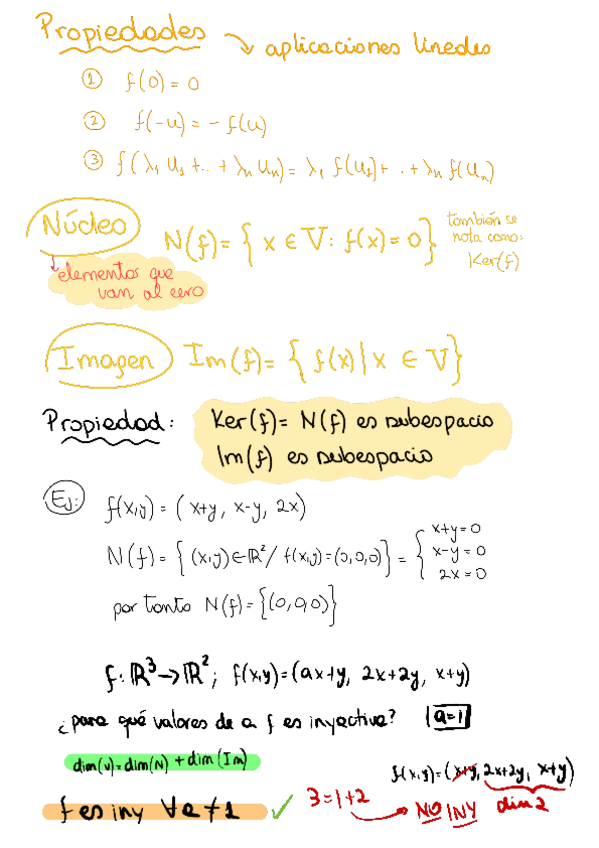 Propiedades → aplicaciones lineales
① f(0) = 0
② f(-u) = - f(u)
③ f(λ₁ u₁ + .. + λₙ uₙ) = λ₁ f(u₁) + .. + λₙ f(uₙ)
Núcleo N(f) = { x ∈ V : f(x) = 0 } también se
nota como:
Ker(f)
elementos que
van al cero
Imagen Im(f) = { f(x) | x ∈ V }
Propiedad: Ker(f) = N(f) es subespacio
Im(f) es subespacio
Ej: f(x,y) = ( x+y, x-y, 2x)
N(f) = { (x,y) ∈ ℝ² / f(x,y) = (0,0,0) } = { x+y=0
x-y=0
2x=0
por tanto N(f) = {(0,0,0)}
f: ℝ³ → ℝ²; f(x,y) = (ax+y, 2x+2y, x+y)
¿para qué valores de a f es inyectiva? a=1
dim(v) = dim(N) + dim(Im)
f(x,y) = (x+y, 2x+2y, x+y)
dim 2
f es iny ∀a≠1 ✓ 3=1+2 → NO INY